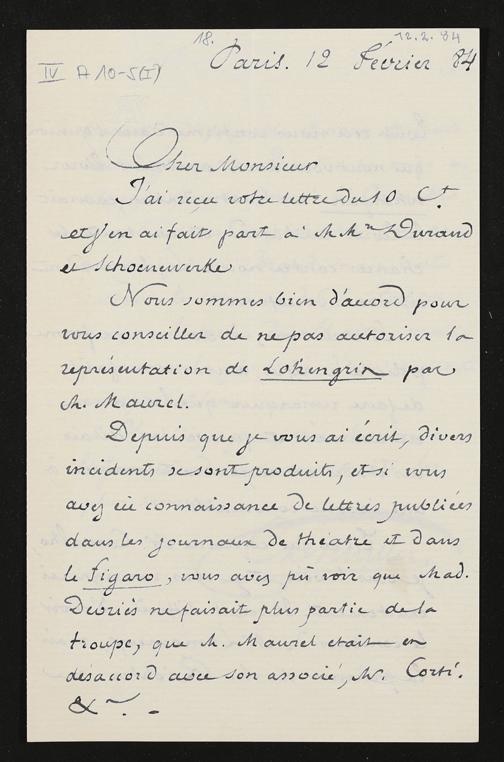 18.
12.2.84
IV A 10-5(I)
Paris. 12 Février 84
Cher Monsieur
J'ai reçu votre lettre du 10 Ct
et j'en ai fait part à M Mrs Durand
et Schoenewerke
Nous sommes bien d'accord pour
vous conseiller de ne pas autoriser la
représentation de Lohengrin par
M. Maurel.
Depuis que je vous ai écrit, divers
incidents se sont produits, et si vous
avez eu connaissance de lettres publiées
dans les journaux de théatre et dans
le Figaro, vous avez pû voir que Mad.
Devriès ne faisait plus partie de la
troupe, que M. Maurel etait en
désaccord avec son associé, Mr. Corti.
&a. -